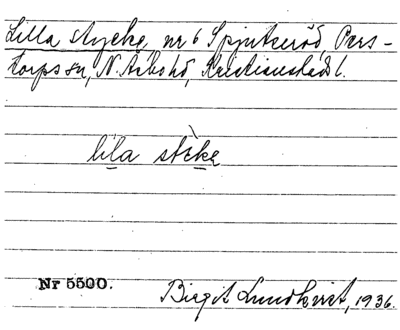 Lilla stycke, nr 6 Spjutseröd, Pers-
torps sn, N. Åsbo hd, Kristianstads l.
lila stèke
Nr 5500.
Birgit Lundkvist, 1936.